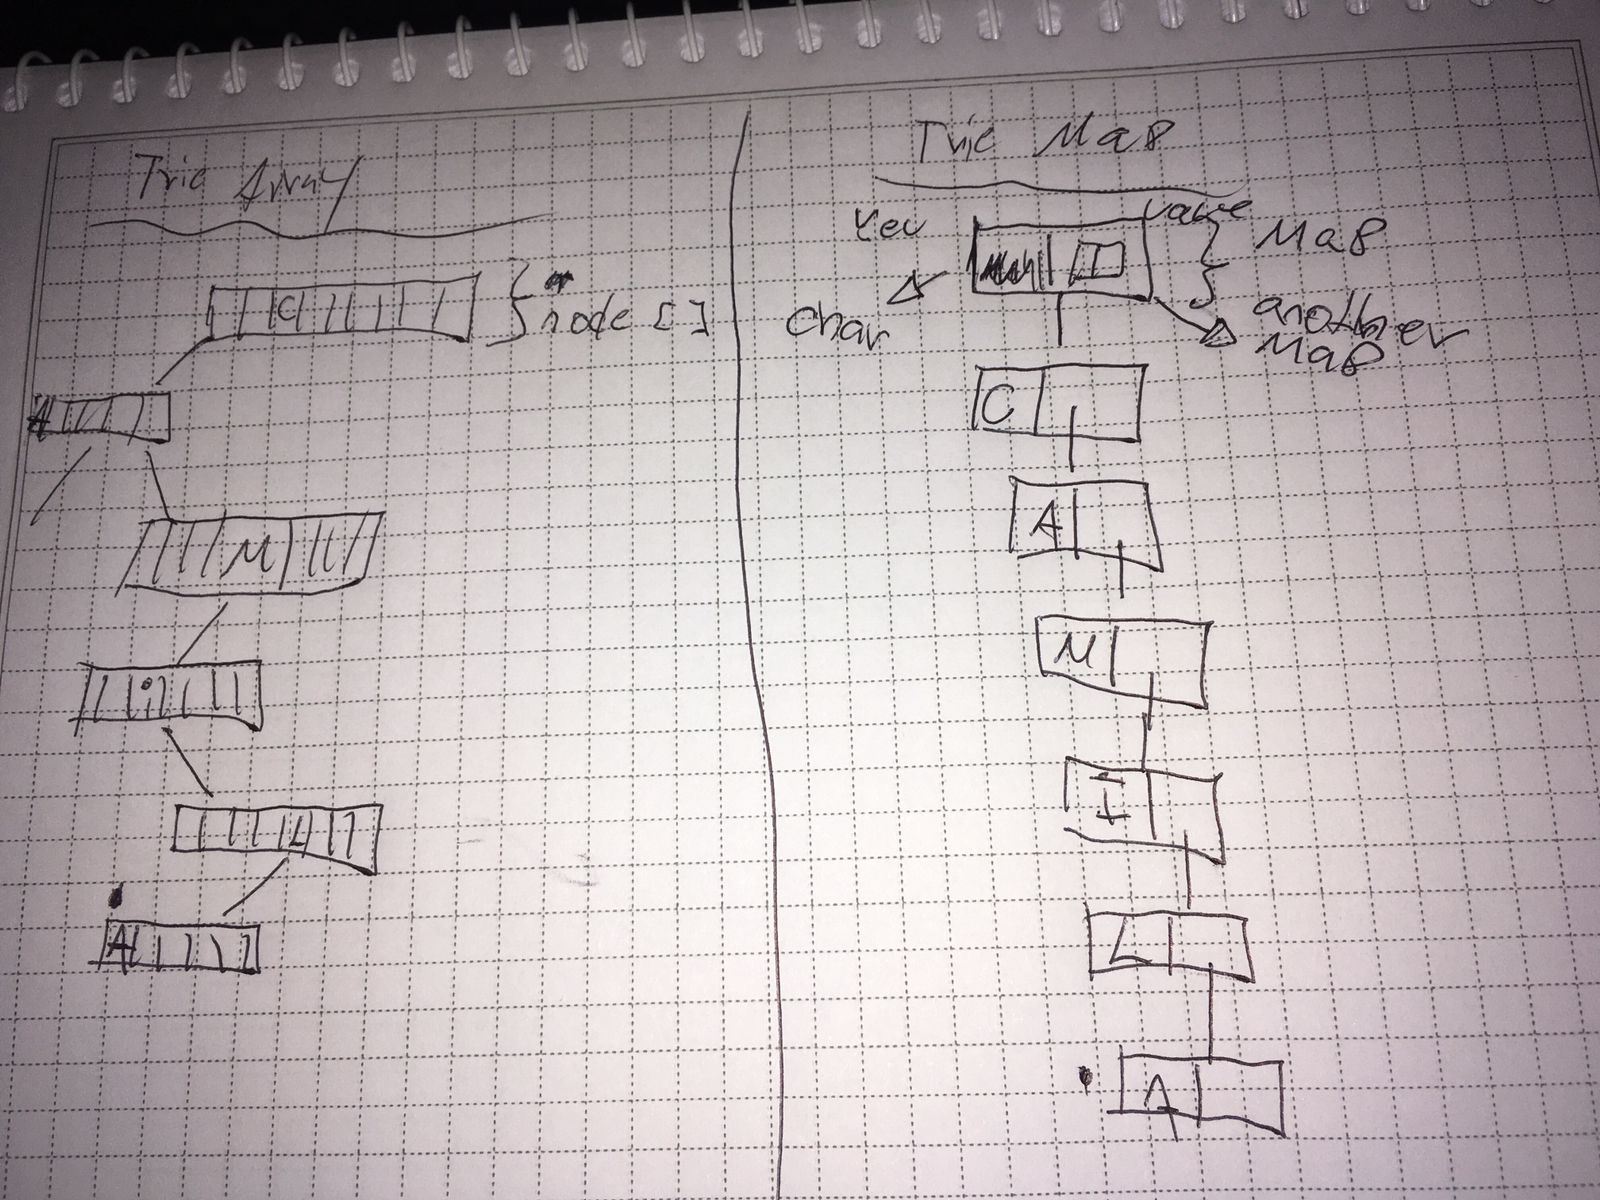 Trie Array
C
node []
A
M
i
L
A
Trie Map
Key
Value
Map
Char
another
Map
C
A
M
I
L
A